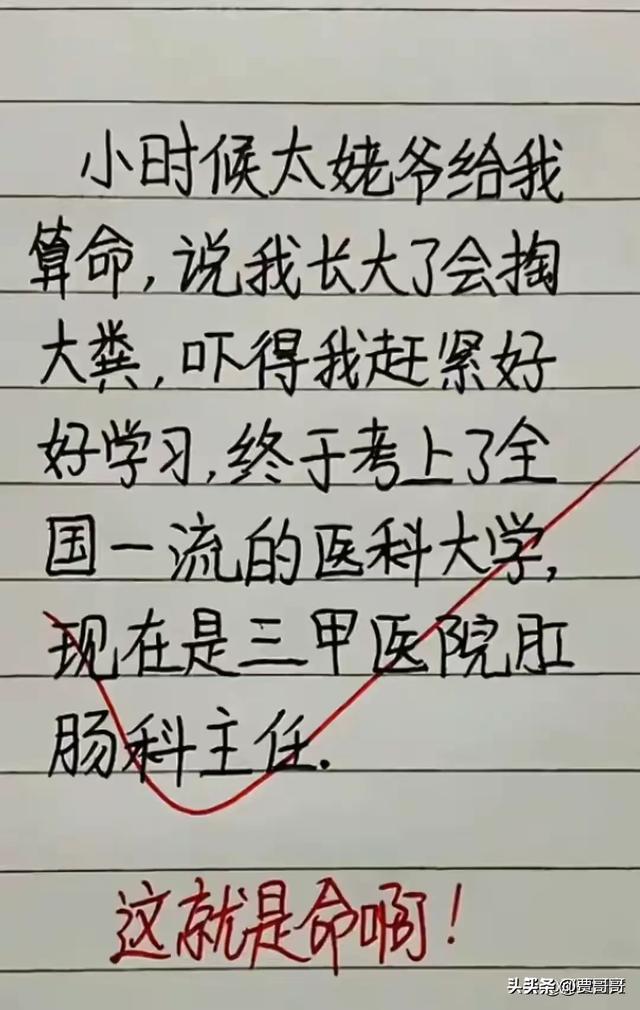 小时候太姥爷给我
算命,说我长大了会掏
大粪,吓得我赶紧好
好学习,终于考上了全
国一流的医科大学,
现在是三甲医院肛
肠科主任.
这就是命啊!
头条 @贾哥哥